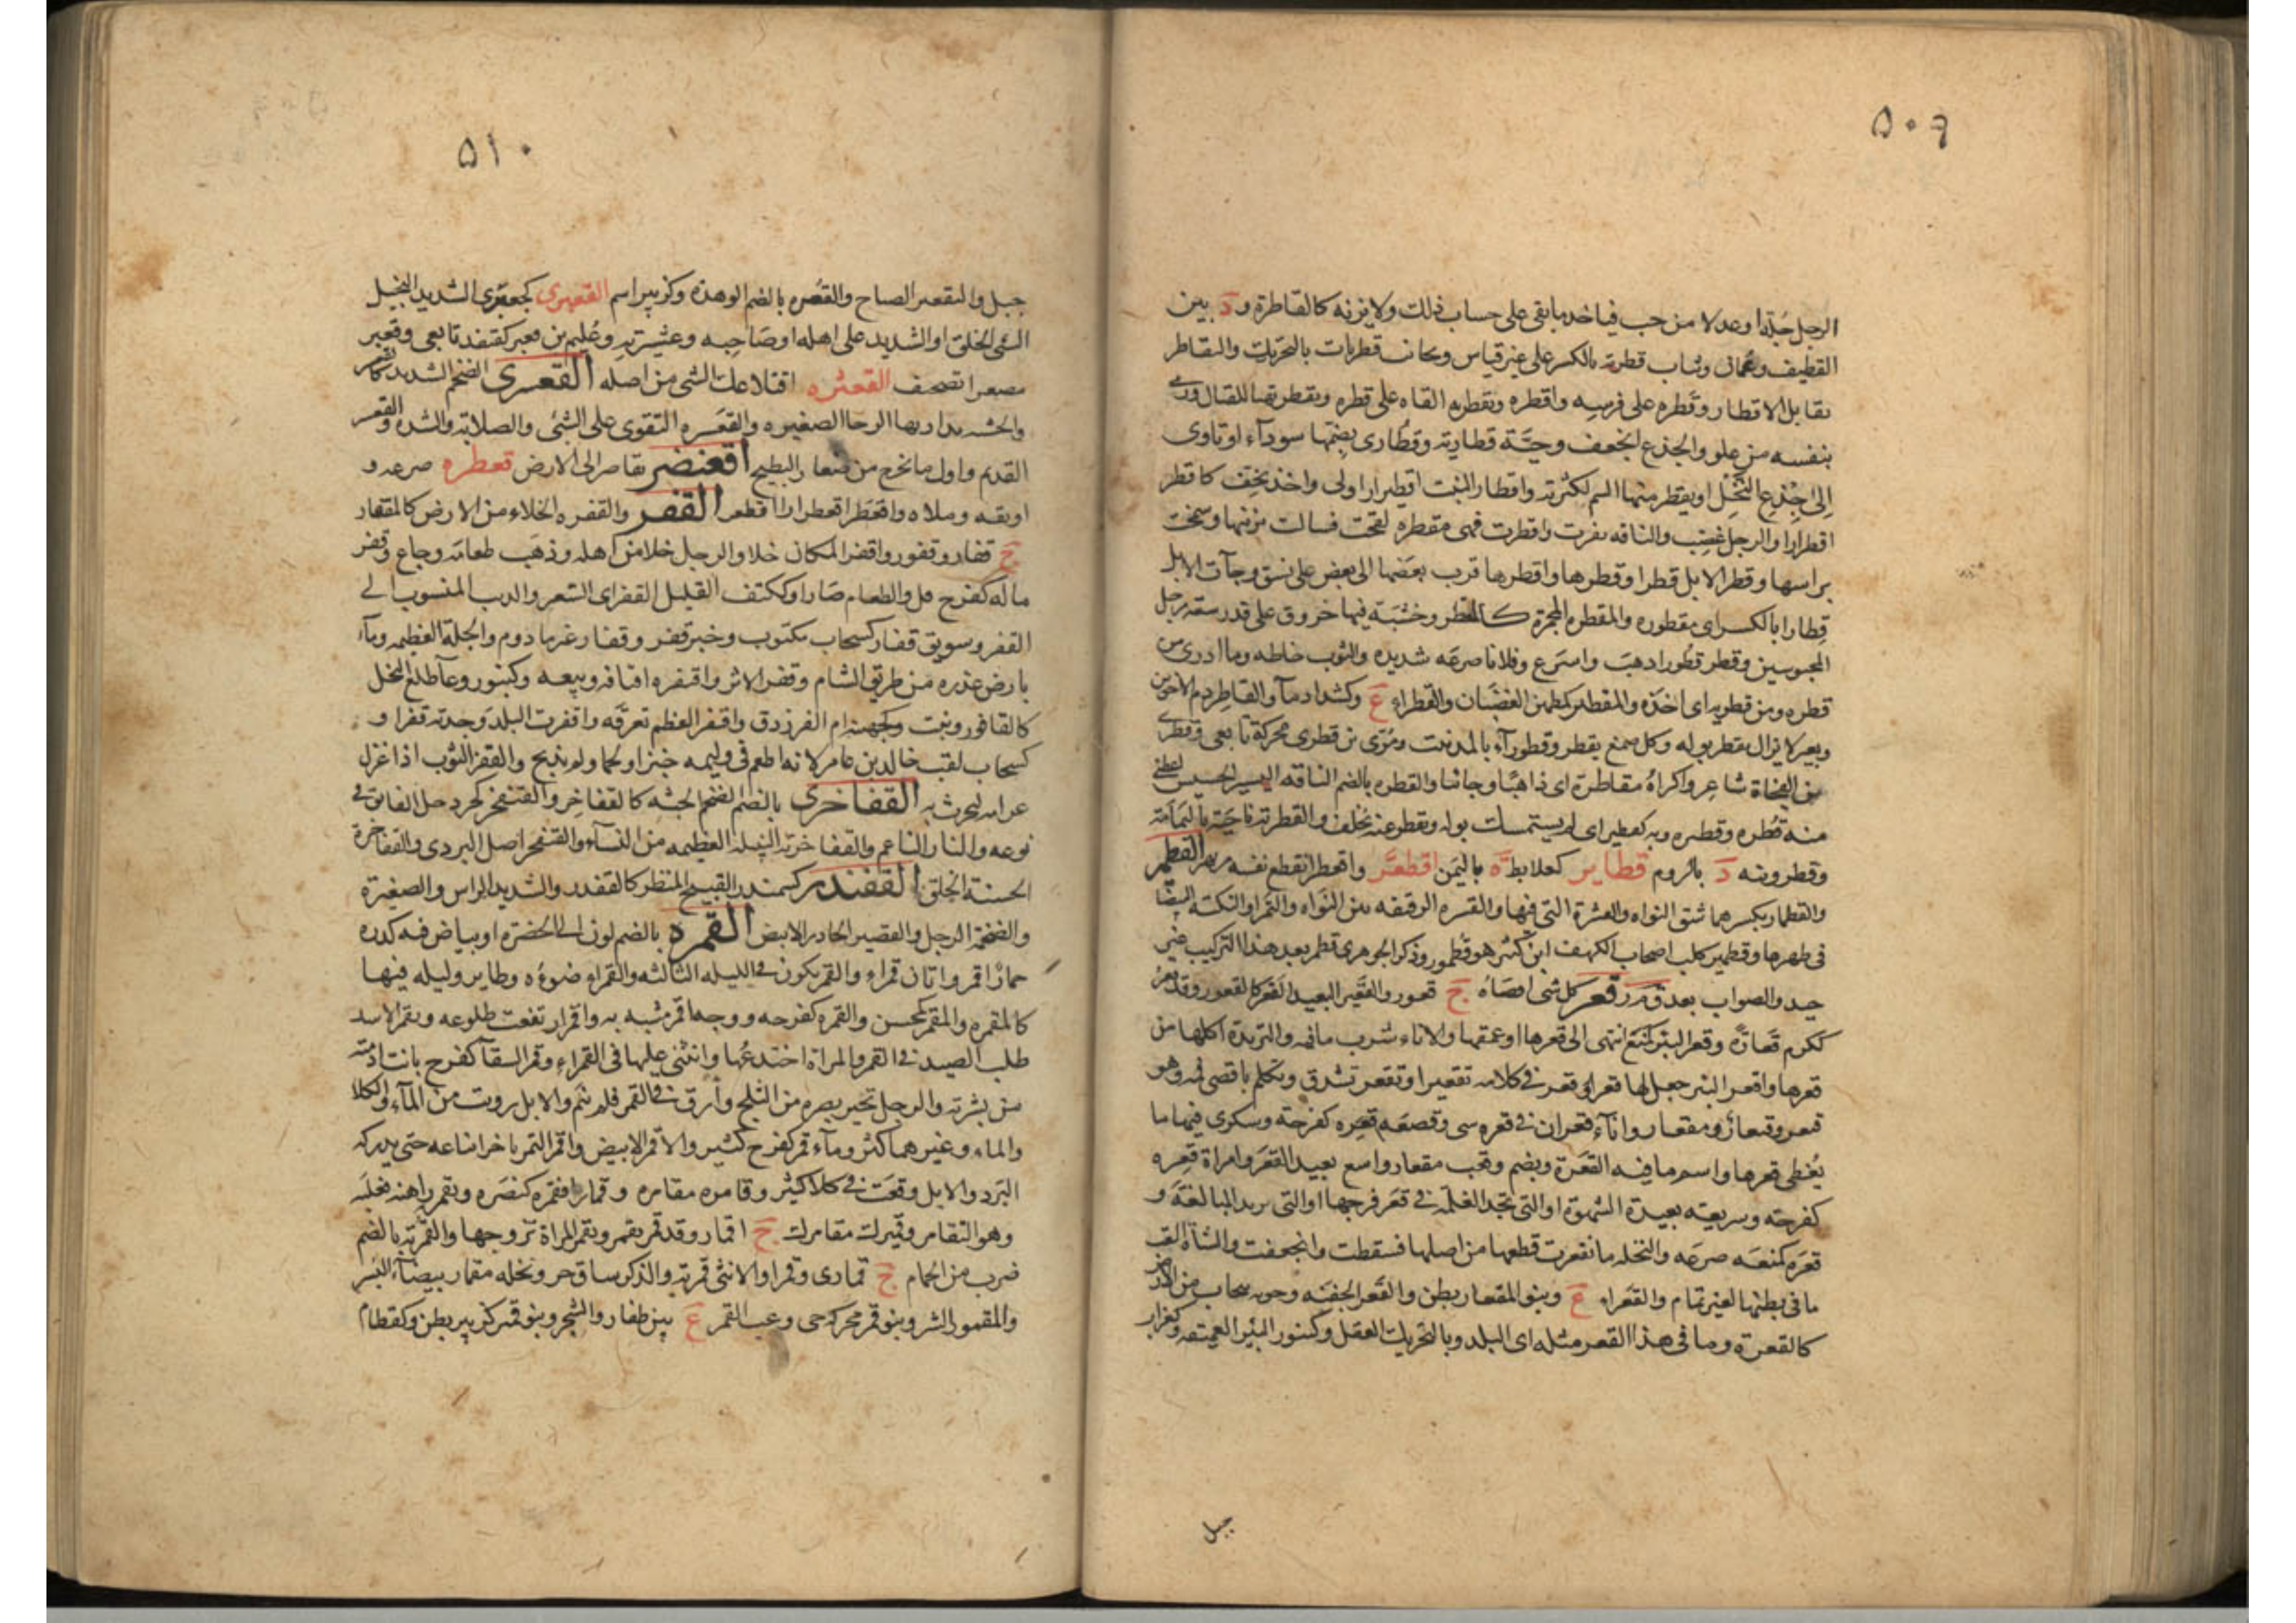 ۵۰۹
الرجل جلة او عدلا من حب فياخذ ما بقى على حساب ذلك ولا يزنه كالقاطرة و د بين
القطيف وعمان وثياب قطرية بالكسر على غير قياس ونجائب قطريات بالتحريك والتقاطر
تقابل الاقطار وقطره على فرسه واقطره وتقطر به القاه على قطره وتقطر تهيا للقتال ورمى
بنفسه من علو والجذع انجعف وحية قطارية وقطارى بضمها سودآء او تاوى
الى جذع النخل او يقطر منها السم لكثرته واقطار النبت اقطيرارا ولى واخذ يخف كاقطر
اقطرارا والرجل غضب والناقه نفرت واقطرت فهى مقطره لقحت فشالت بذنبها وشمخت
براسها وقطر الابل قطرا وقطرها واقطرها قرب بعضها الى بعض على نسق وجآت الابل
قطارا بالكسر اى مقطوره والمقطره المجمرة كالمقطر وخشبة فيها خروق على قدر سعة رجل
المحبوسين وقطر قطورا ذهب واسرع وفلانا صرعه شديده والثوب خاطه وما ادرى من
قطره ومن قطر به اى اخذه والمقطئر كمطمئن الغضبان والقطراء ع وكشداد مآ والقاطر دم الاخوين
وبعير لا يزال يقطر بوله وكل صمغ يقطر وقطورآء بالمد نبت ومرى بن قطرى محركة تابعى وقطرى
بن الفجاة شاعر واكراه مقاطرة اى ذاهبا وجائيا والقطره بالضم الناقه اليسير الخسيس
منه قطره وقطيره وبه تقطير اى لم يستمسك بوله وتقطر عنه تخلف والقطرية ناحية باليمامة
وقطرونيه د بالروم قطاير كعلابط ة باليمن اقطعر واقعطر انقطع نفسه بهر القطمير
والقطمار بكسرهما شق النواه والقشرة التى فيها والقشره الرقيقه بين النواه والتمر او النكته البيضا
فى ظهرها وقطمير كلب اصحاب الكهف ابن كثير هو قطمور وذكر الجوهرى قطمر بعد هذا التركيب غير
جيد والصواب بعد ق م ر قعر كل شى اقصاه ج قعور والقعير البعيد القعر كالقعور وقد قعر
ككرم قعارة وقعر البئر كمنع انتهى الى قعرها او عمقها والاناء شرب ما فيه والثريدة اكلها من
قعرها واقعر البئر جعل لها قعرا وقعر فى كلامه تقعيرا وتقعر تشدق وتكلم باقصى فمه وهو
قيعر وقيعار ومقعار وانآء قعران فى قعره شى وقصعه قعره كفرحة وسكرى فيها ما
يغطى قعرها واسم ما فيه القعرة ويضم وقعب مقعار واسع بعيد القعر وامراة قعره
كفرحته وسريعته بعيدة الشهوة او التى تجد الغلمه فى قعر فرجها او التى تريد المبالغة و
قعره كمنعه صرعه والنخله فانقعرت قطعها من اصلها فسقطت وانجعفت والشاة القت
ما فى بطنها لغير تمام والقعراء ع وبنو المقعار بطن والقعر الجفنه وجوبه تنجاب من الارض
كالقعرة وما فى هذا القعر مثله اى البلد وبالتحريك العقل وكتنور البئر العميقه وكغراب
جبل
۵۱۰
جبل والتقعير الصياح والقعره بالضم الوهدة وكزبير اسم القعبرى كجعبرى الشديد البخيل
السئ الخلق او الشديد على اهله او صاحبه وعشيرته وعليم بن قعبر كقنفذ تابعى وقعير
مصغرا تصحيف القعثره اقتلاعك الشى من اصله القعسرى الضخم الشديد كالقعسر
والخشبه يدار بها الرحا الصغيره والقعسره التقوى على الشئ والصلابة والشدة والقعسر
القديم واول ما يخرج من صغار البطيخ اقعنصر تقاصر الى الارض قعطره صرعه و
اوثقه وملاه واقعطر اقعطرارا اقطعر القفر والقفره الخلاء من الارض كالمقفار
ج قفار وقفور واقفر المكان خلا والرجل خلا من اهله وذهب طعامه وجاع وقفر
ماله كفرح قل والطعام صار وككتف القليل القفر اى الشعر والذئب المنسوب الى
القفر وسويق قفار كسحاب مكتوب وخبز قفر وقفار غير مادوم والجلة العظيمه ومآء
بارض عذره من طريق الشام وقفر الاثر واقتفره اقتافه وتتبعه وكتنور وعآ طلع النخل
كالقافور ونبت وكجهينه ام الفرزدق واقتفر العظم تعرقه واقفرت البلد وجدته قفرا و
كسحاب لقب خالد بن عامر لانه اطعم فى وليمه خبزا ولحما ولم يذبح والقفز الثوب اذا غزل
القفاخرى بالضم الضخم الجثه كالقفاخر والقنفخر كجردحل الفايق فى
نوعه والتار الناعم والقفاخرية النبيله العظيمه من النسآء والقنفخر اصل البردى والقفاخرة
الحسنة الخلق القفندر كسمندر القبيح المنظر كالقفدر والشديد الراس والصغيرة
والضخم الرجل والقصير الحادر الابيض القمره بالضم لون الى الخضرة او بياض فيه كدره
حمار اقمر واتان قمراء والقمر يكون فى الليله الثالثه والقمراء ضوءه وطاير وليله فيها
كالمقمره والمقمر كمحسن والقمره كفرحه ووجه اقمر شبه به واقمر ارتقبت طلوعه وتقمر الاسد
طلب الصيد فى القمر والمراة اختدعها وابتنى عليها فى القمراء وقمر السقآ كفرح بانت ادمته
من بشرته والرجل تحير بصره من الثلج وارق فى القمر فلم ينم والابل رويت من المآء والكلا
والماء وغيرهما كثر ومآء قمر كفرح كثير والاقمر الابيض واقمر التمر تاخر ايناعه حتى يدركه
البرد والابل وقعت فى كلا كثير وقامره مقامره وقمارا فقمره كنصره وتقمره راهنه فغلبه
وهو التقامر وقميرك مقامرك ج اقمار وقد قمر يقمر وتقمر المراة تزوجها والقمرية بالضم
ضرب من الحمام ج قمارى وقمر او الانثى قمرية والذكر ساق حر ونخله مقمار بيضآء البسر
والمقمور الشر وبنو قمر محركة حى وعب القمر ع بين ظفار والشحر وبنو قمير كزبير بطن وكقطام